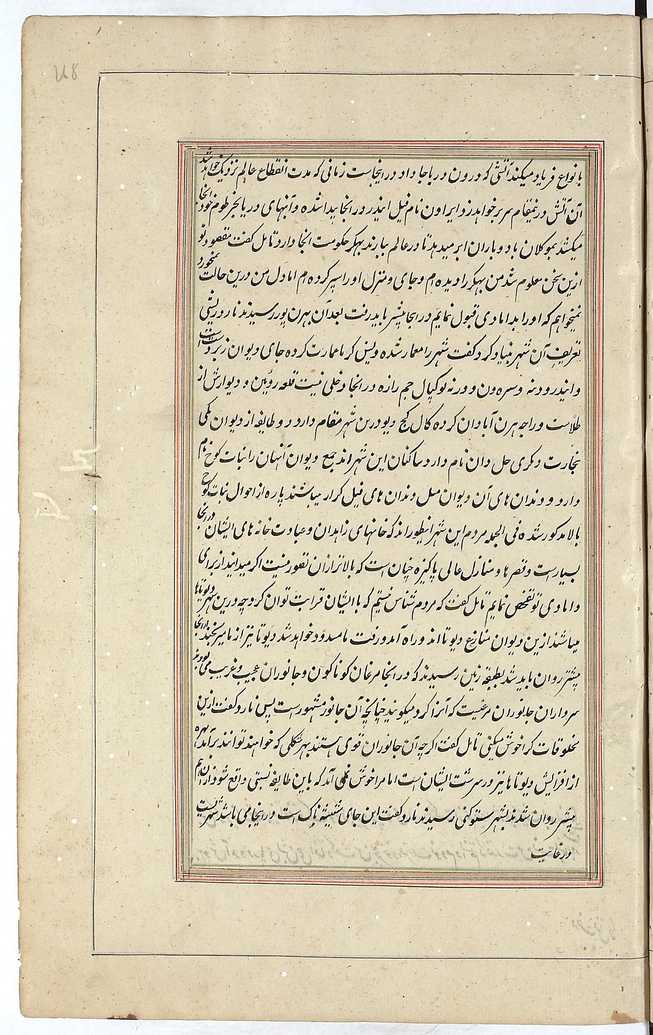 بانواع فریاد میکند آتشی که درون دریا جا داد در اینجاست زمانی که مدت انقطاع عالم نزدیک خواهد شد
آن آتش در نمقام سر بر خواهد زد ایراون نام فیل اندر در انجا پیدا شده و آبهای دریا بخرطوم خود انجا
میکشد بموکلان باد و باران ابر میدهد تا در عالم ببارند بهیکر حکومت انجا دارد تامل گفت مقصود تو
ازین سخن معلوم شد من بهیکر را دیده ام و جای و منزل او را سیر کرده ام اما دل من درین حالت
نمیخواهم که او را بدامادی قبول نمایم در انجا پیشتر باید رفت بعد آن بهرن پور رسیدند نارد ریشی
تعریف آن شهر بنیاد کرد گفت شهر را معمار شده ویس کرما عمارت کرده جای دیوان زبردست است
و اندر و دونه و سره ون و ورنه لوکپال جم را زه در انجا دخلی نیست قلعه روئین و دیوارش از
طلاست و راجه هرن آبادان کرده کال کنج دیو درین شهر مقام دارد و طایفه از دیوان یکی
تجارت دیگری حل دان نام دارد ساکنان این شهراند جمع دیوان آنهان را نبات کوچ نام
دارد و دندان های آن دیوان مثل دندان های فیل کرار میباشند پاره از احوال نبات کوچ
بالا مذکور شده فی الجمله مردم این شهر اینطور اند که خانهای زاهدان و عبادت خانه های ایشان در انجا
بسیارست و قصرها و منازل عالی پاکیزه چنان است که بالاتر از آن تصور نیست اگر میدانید از برای
دامادی تو تفحص نمایم تامل گفت که مردم شناس نیستیم که با ایشان قرابت توان کرد و چه درین شهر دیوتاها
میباشند ازین دیوان منازع دیوتا اند و راه آمد و رفت ما مسدود خواهد شد دیوتا نیز از ما میرنجند از انجا
پیشتر روان باید شد بطبقه زمین رسیدند که در انجا مرغان کوناکون و جانوران عجیب و غریب می بودند
سرداران جانوران مرغیست که آنرا کرد میگویند چنانچه آن جانور مشهورست پس نارد گفت ازین
مخلوقات کرا خوش میکنی تامل گفت اگرچه آن جانوران قوی هستند بهر شکلی که خواهند توانند برآمد بهره
از افزایش دیوتاها نیز در سرشت ایشان است اما مرا خوش نمی آید که باین طایفه نسبتی واقع شود از آن هم
پیشتر روان شدند بشهر ستوکنی رسیدند نارد گفت این جای شیشه ناک است در اینجا می باشد شهریست
در غایت